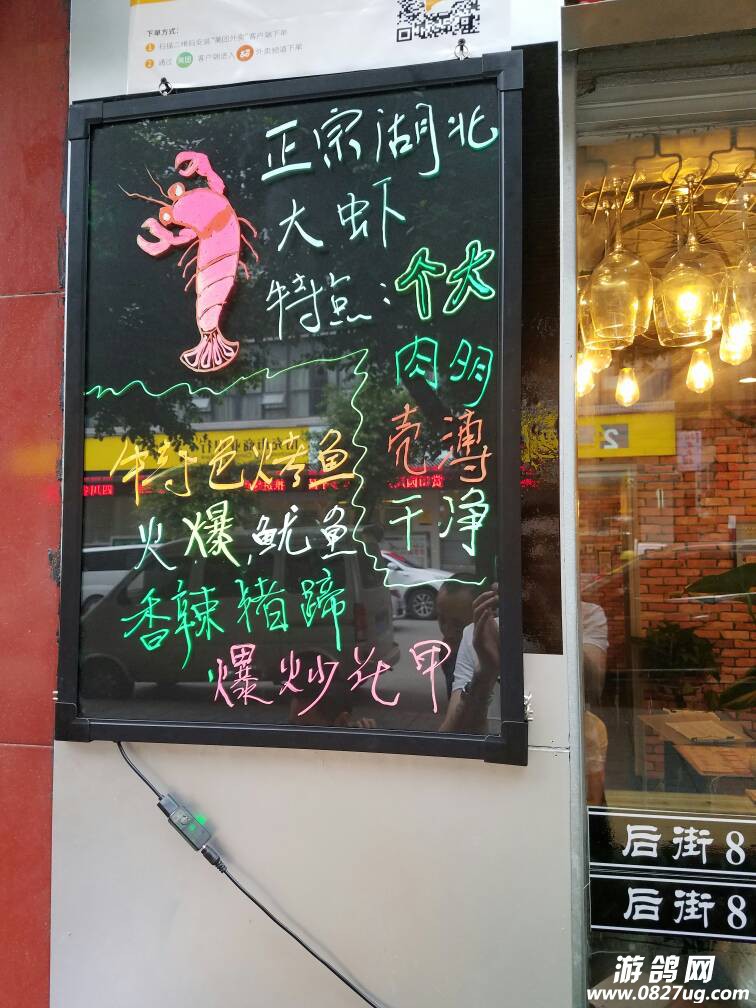 下单方式:
1 扫描二维码安装“美团外卖”客户端下单
2 通过 美团 客户端进入 外卖频道下单
正宗湖北
大虾
特点:个大
肉多
壳薄
干净
特色烤鱼
火爆鱿鱼
香辣猪蹄
爆炒花甲
后街8
后街8
游鸽网
www.0827ug.com